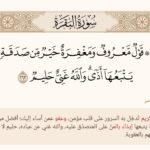 سُورَةُ البَقَرَةِ
۞ قَوْلٌ مَّعْرُوفٌ وَمَغْفِرَةٌ خَيْرٌ مِّن صَدَقَةٍ
يَتْبَعُهَا أَذًى وَاللَّهُ غَنِيٌّ حَلِيمٌ ٢٦٣
كريم تُدخل به السرور على قلب مؤمن، وعفو عمن أساء إليك؛ أفضل من
يتبعها إيذاء بالمنّ على المتصدق عليه، والله غني عن عباده، حليم لا
هم بالعقوبة.